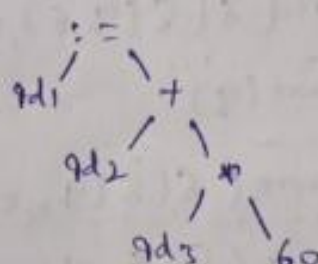 :=
id1 +
id2 *
id3 60